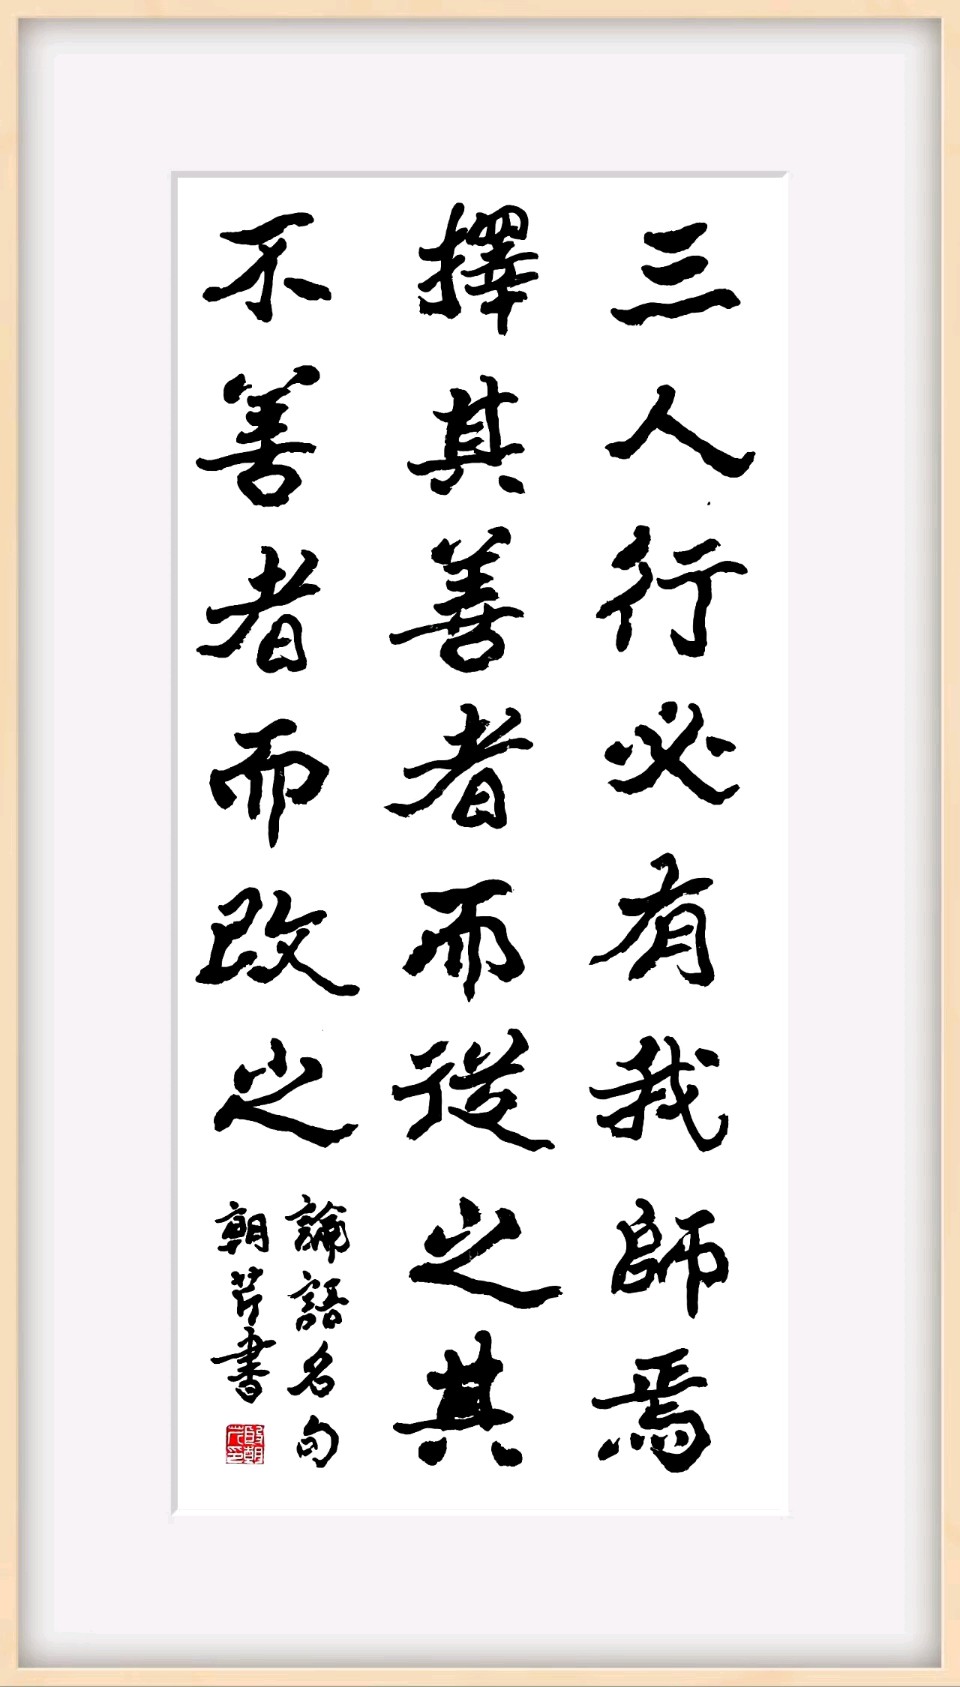 三人行必有我師焉
擇其善者而從之其
不善者而改之
論語名句
朝芹書